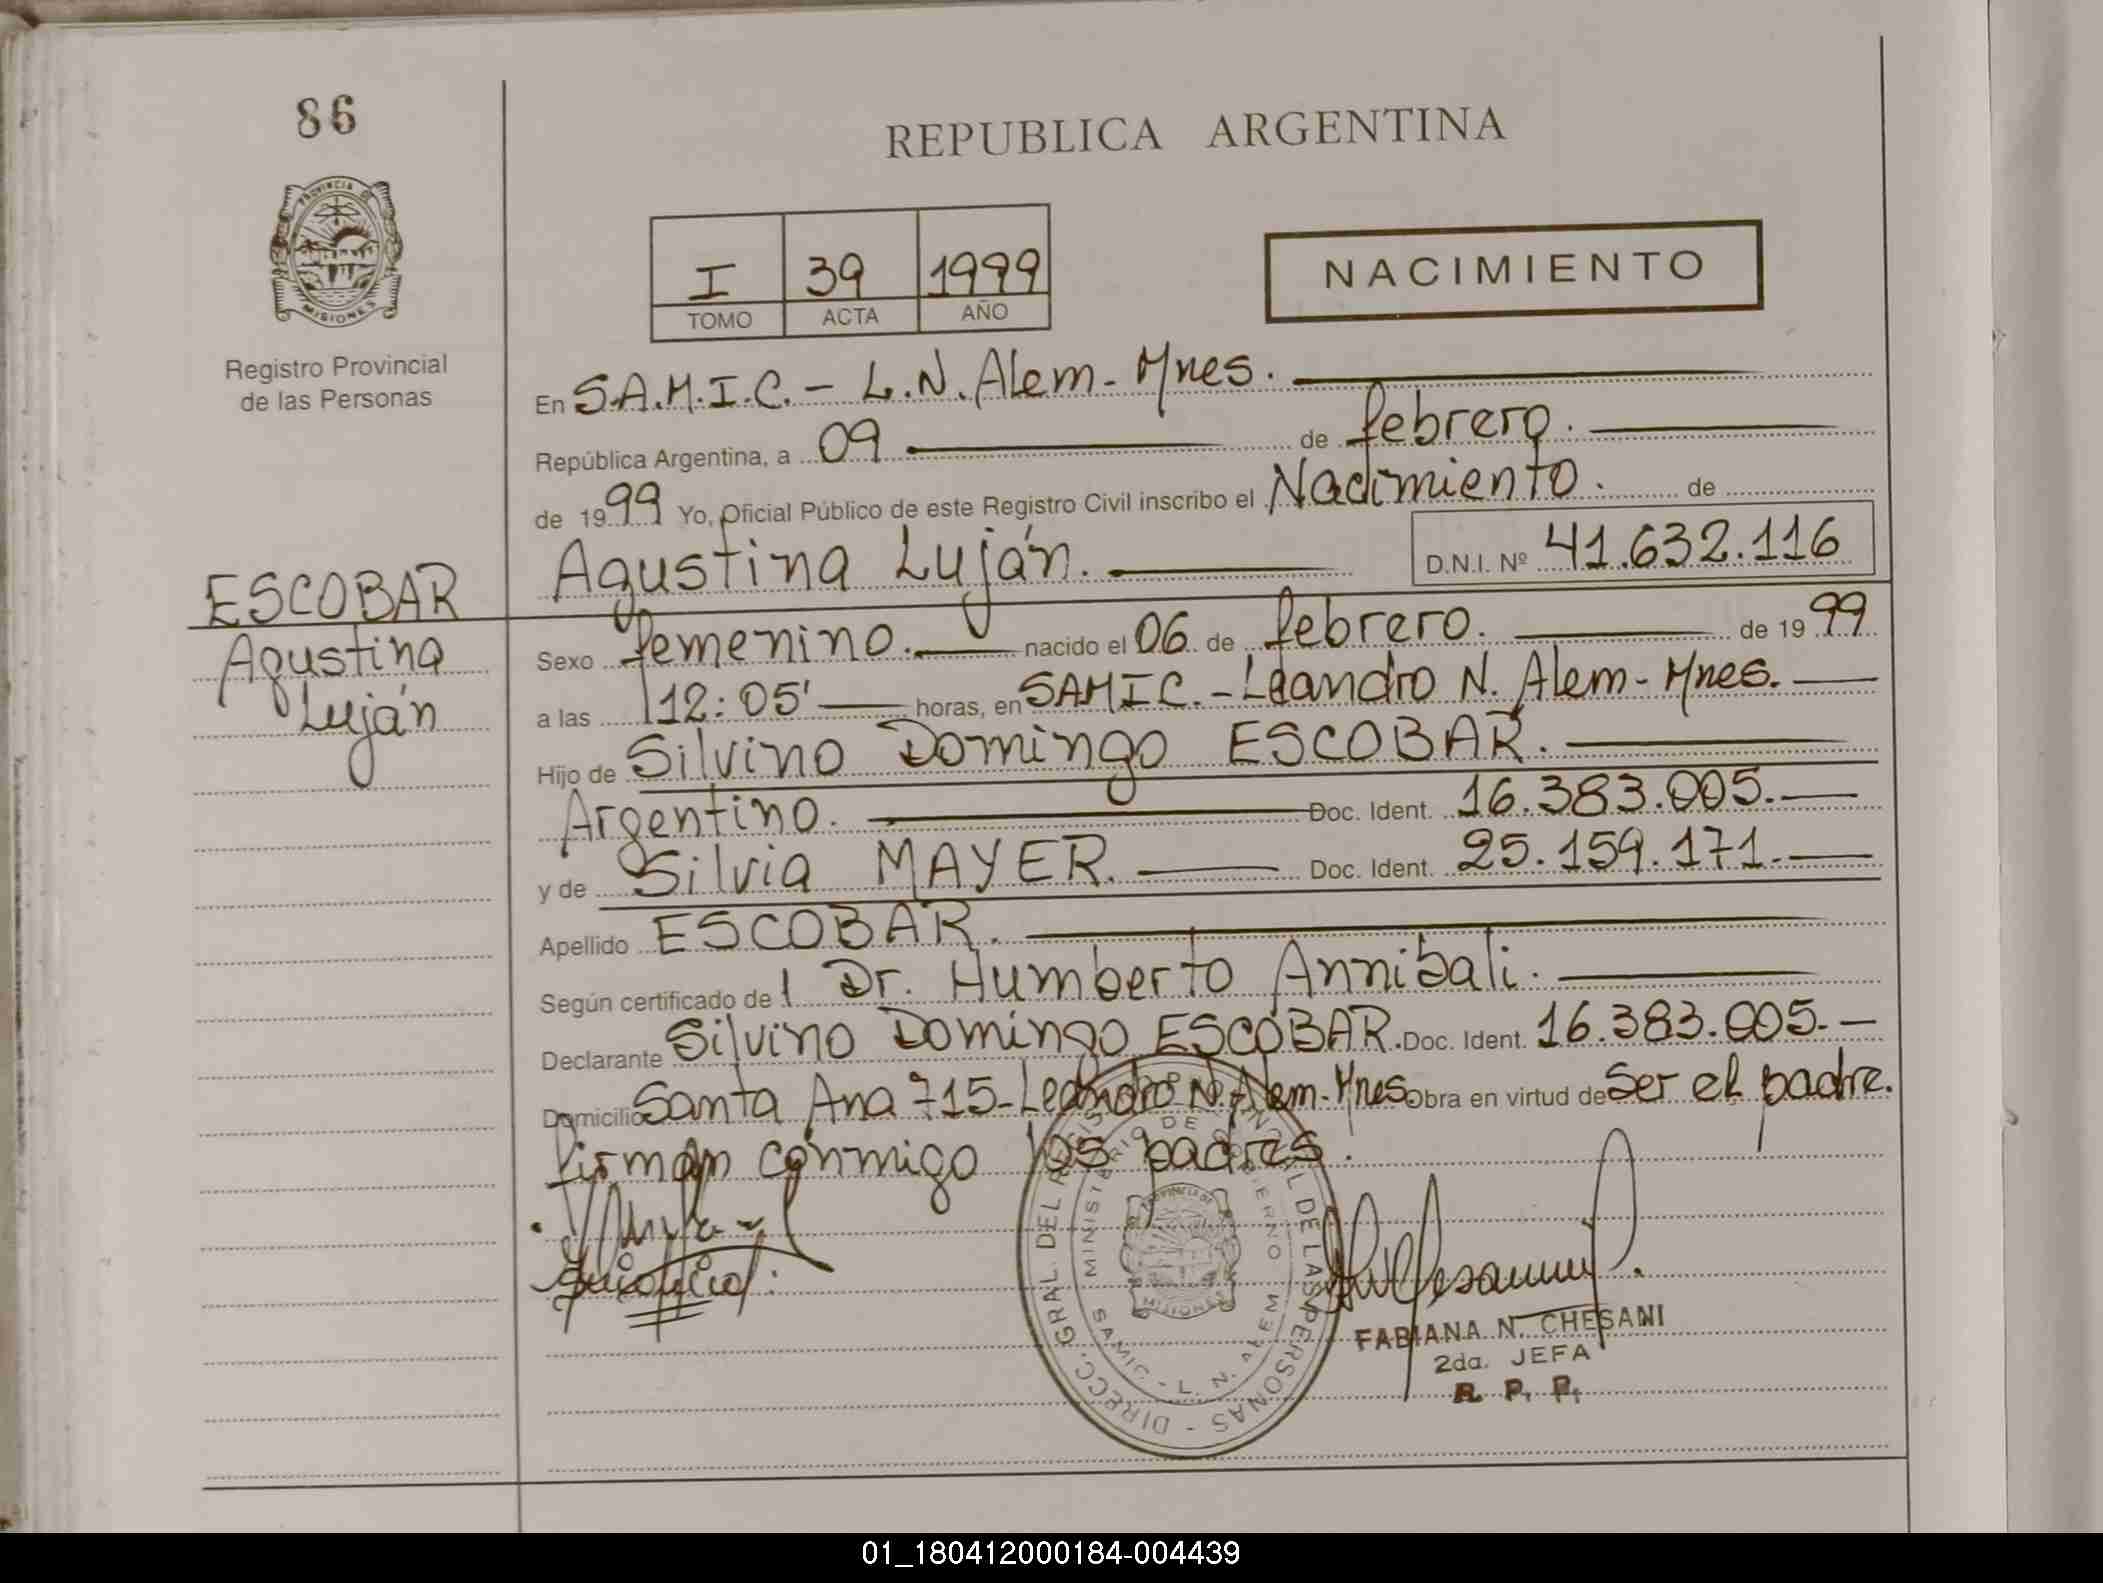 86
REPUBLICA ARGENTINA
PROVINCIA DE
MISIONES
Registro Provincial
de las Personas
I 39 1999
TOMO ACTA AÑO
NACIMIENTO
En S.A.M.I.C. - L.N. Alem - Mnes.
República Argentina, a 09 de febrero.
de 1999 Yo, Oficial Público de este Registro Civil inscribo el Nacimiento. de
Agustina Luján. D.N.I. Nº 41.632.116
ESCOBAR
Agustina
Luján
Sexo femenino. nacido el 06 de febrero. de 1999
a las 12:05' horas, en SAMIC. - Leandro N. Alem - Mnes.
Hijo de Silvino Domingo ESCOBAR.
Argentino. Doc. Ident. 16.383.005.
y de Silvia MAYER. Doc. Ident. 25.159.171.
Apellido ESCOBAR.
Según certificado de l Dr. Humberto Annibali.
Declarante Silvino Domingo ESCOBAR. Doc. Ident. 16.383.005.
Domicilio Santa Ana 715 - Leandro N. Alem - Mnes Obra en virtud de Ser el padre.
firman conmigo los padres.
DIRECC. GRAL. DEL REGIST PROVINCIAL DE LAS PERSONAS
MINISTERIO DE GOBIERNO
SAMIC - L. N. ALEM
PROVINCIA DE
MISIONES
FABIANA N. CHESANI
2da. JEFA
R. P. P.
01_180412000184-004439